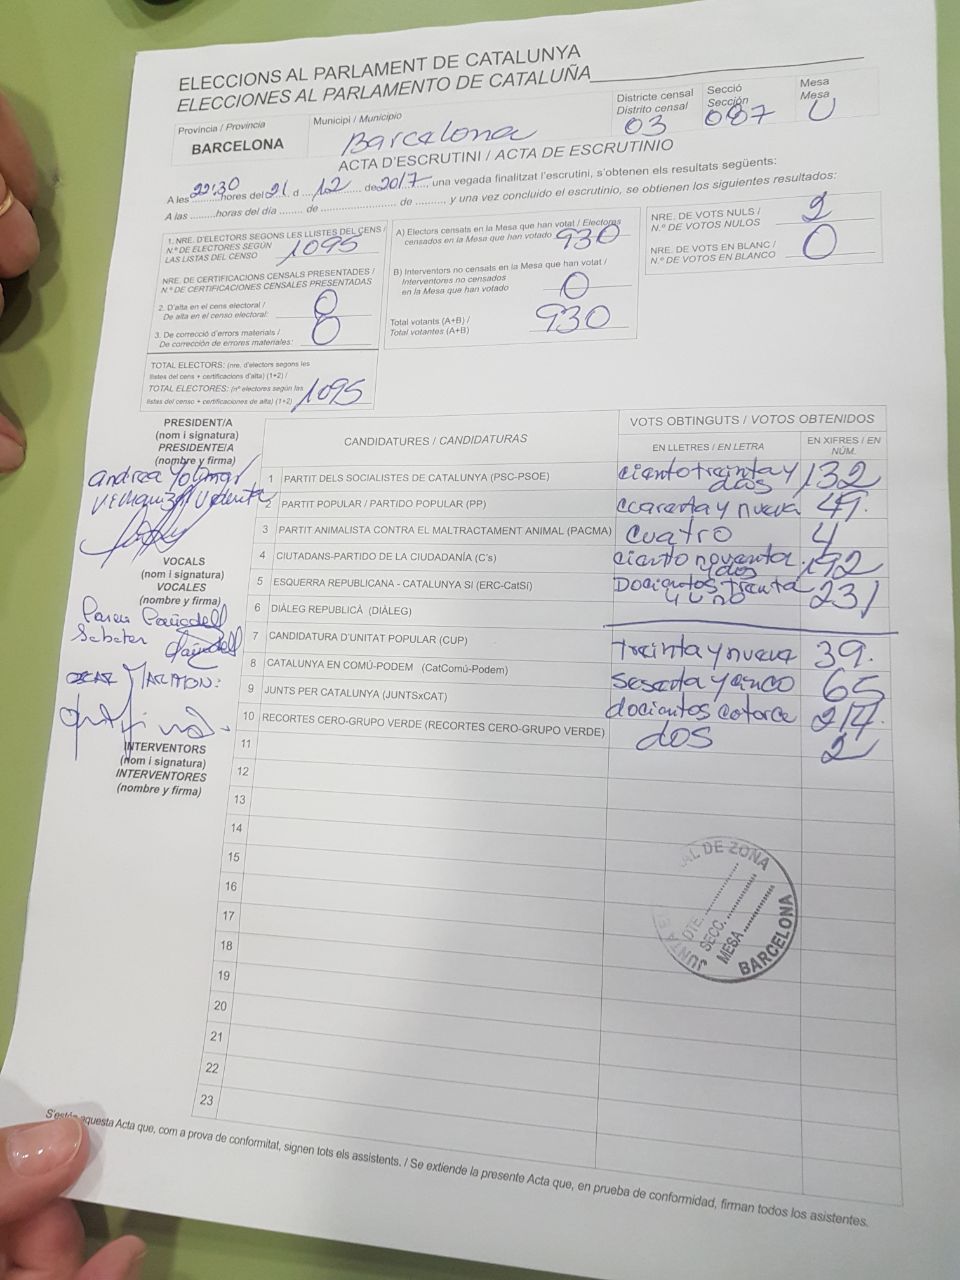 ELECCIONS AL PARLAMENT DE CATALUNYA
ELECCIONES AL PARLAMENTO DE CATALUÑA
Província / Provincia
BARCELONA
Municipi / Municipio
Barcelona
Districte censal
Distrito censal
03
Secció
Sección
087
Mesa
Mesa
U
ACTA D'ESCRUTINI / ACTA DE ESCRUTINIO
A les 22:30 hores del 21 d 12 de 2017, una vegada finalitzat l'escrutini, s'obtenen els resultats següents:
A las ......... horas del día ........ de .......................... de .........., y una vez concluido el escrutinio, se obtienen los siguientes resultados:
1. NRE. D'ELECTORS SEGONS LES LLISTES DEL CENS /
N.º DE ELECTORES SEGÚN
LAS LISTAS DEL CENSO
1095
NRE. DE CERTIFICACIONS CENSALS PRESENTADES /
N.º DE CERTIFICACIONES CENSALES PRESENTADAS
2. D'alta en el cens electoral /
De alta en el censo electoral:
0
3. De correcció d'errors materials /
De corrección de errores materiales:
0
TOTAL ELECTORS: (nre. d'electors segons les
llistes del cens + certificacions d'alta) (1+2) /
TOTAL ELECTORES: (nº electores según las
listas del censo + certificaciones de alta) (1+2)
1095
A) Electors censats en la Mesa que han votat / Electores
censados en la Mesa que han votado
930
B) Interventors no censats en la Mesa que han votat /
Interventores no censados
en la Mesa que han votado
0
Total votants (A+B) /
Total votantes (A+B)
930
NRE. DE VOTS NULS /
N.º DE VOTOS NULOS
2
NRE. DE VOTS EN BLANC /
N.º DE VOTOS EN BLANCO
0
PRESIDENT/A
(nom i signatura)
PRESIDENTE/A
(nombre y firma)
Andrea
VOCALS
(nom i signatura)
VOCALES
(nombre y firma)
Sabater
INTERVENTORS
(nom i signatura)
INTERVENTORES
(nombre y firma)
CANDIDATURES / CANDIDATURAS
VOTS OBTINGUTS / VOTOS OBTENIDOS
EN LLETRES / EN LETRA
EN XIFRES / EN NÚM.
1 PARTIT DELS SOCIALISTES DE CATALUNYA (PSC-PSOE) ciento treinta y dos 132
2 PARTIT POPULAR / PARTIDO POPULAR (PP) y nueve 49.
3 PARTIT ANIMALISTA CONTRA EL MALTRACTAMENT ANIMAL (PACMA) cuatro 4
4 CIUTADANS-PARTIDO DE LA CIUDADANÍA (C's) ciento noventa y dos 192
5 ESQUERRA REPUBLICANA - CATALUNYA SÍ (ERC-CatSí) Docientos treinta y uno 231
6 DIÀLEG REPUBLICÀ (DIÀLEG)
7 CANDIDATURA D'UNITAT POPULAR (CUP) treinta y nueve 39.
8 CATALUNYA EN COMÚ-PODEM (CatComú-Podem) y cinco 65
9 JUNTS PER CATALUNYA (JUNTSxCAT) docientos catorce 214
10 RECORTES CERO-GRUPO VERDE (RECORTES CERO-GRUPO VERDE) dos 2
11
12
13
14
15
16
17
18
19
20
21
22
23
JUNTA AL DE ZONA
DTE.
SECC.
MESA
BARCELONA
aquesta Acta que, com a prova de conformitat, signen tots els assistents. / Se extiende la presente Acta que, en prueba de conformidad, firman todos los asistentes.